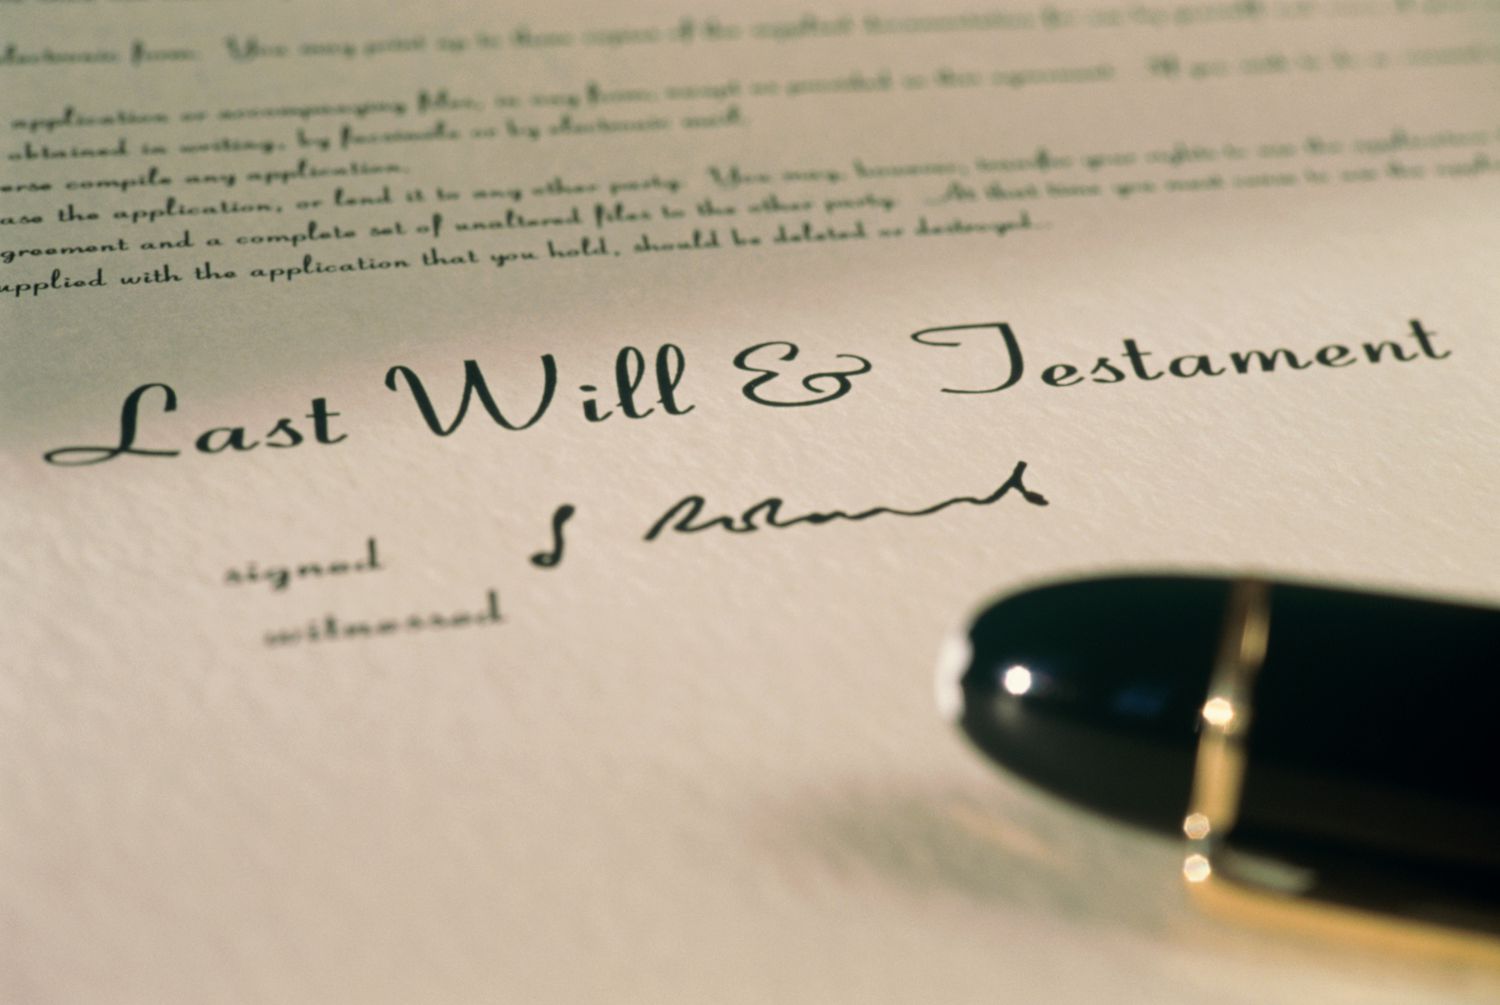 electronic form. You may print up to three copies of the supplied documentation for
application or accompanying files, in any form, except as provided in this agreement. If you
obtained in writing, by facsimile or by electronic mail.
erse compile any application.
ase the application, or lend it to any other party. You may, however, transfer your rights to use the application
greement and a complete set of unaltered files to the other party. At that time you must cease to use the
upplied with the application that you hold, should be deleted or destroyed...
Last Will & Testament
signed
witnessed